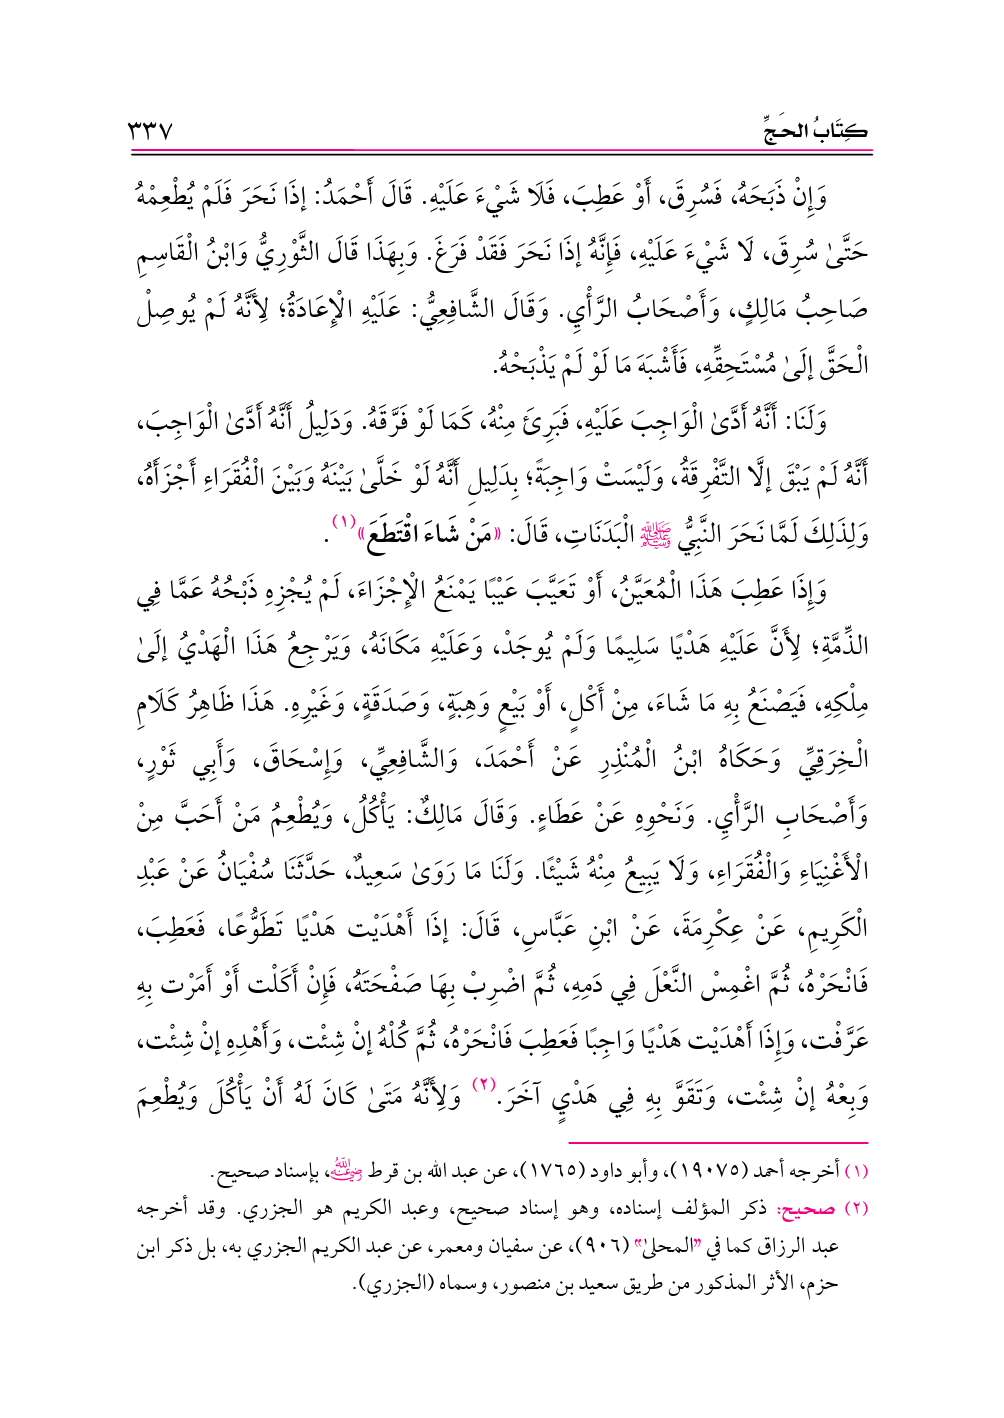 كِتَابُ الحَجِّ ٣٣٧
وَإِنْ ذَبَحَهُ، فَسُرِقَ، أَوْ عَطِبَ، فَلَا شَيْءَ عَلَيْهِ. قَالَ أَحْمَدُ: إذَا نَحَرَ فَلَمْ يُطْعِمْهُ
حَتَّىٰ سُرِقَ، لَا شَيْءَ عَلَيْهِ، فَإِنَّهُ إذَا نَحَرَ فَقَدْ فَرَغَ. وَبِهَذَا قَالَ الثَّوْرِيُّ وَابْنُ الْقَاسِمِ
صَاحِبُ مَالِكٍ، وَأَصْحَابُ الرَّأْيِ. وَقَالَ الشَّافِعِيُّ: عَلَيْهِ الْإِعَادَةُ؛ لِأَنَّهُ لَمْ يُوصِلْ
الْحَقَّ إلَىٰ مُسْتَحِقِّهِ، فَأَشْبَهَ مَا لَوْ لَمْ يَذْبَحْهُ.
وَلَنَا: أَنَّهُ أَدَّىٰ الْوَاجِبَ عَلَيْهِ، فَبَرِئَ مِنْهُ، كَمَا لَوْ فَرَّقَهُ. وَدَلِيلُ أَنَّهُ أَدَّىٰ الْوَاجِبَ،
أَنَّهُ لَمْ يَبْقَ إلَّا التَّفْرِقَةُ، وَلَيْسَتْ وَاجِبَةً؛ بِدَلِيلِ أَنَّهُ لَوْ خَلَّىٰ بَيْنَهُ وَبَيْنَ الْفُقَرَاءِ أَجْزَأَهُ،
وَلِذَلِكَ لَمَّا نَحَرَ النَّبِيُّ ﷺ الْبَدَنَاتِ، قَالَ: «مَنْ شَاءَ اقْتَطَعَ»(١).
وَإِذَا عَطِبَ هَذَا الْمُعَيَّنُ، أَوْ تَعَيَّبَ عَيْبًا يَمْنَعُ الْإِجْزَاءَ، لَمْ يُجْزِهِ ذَبْحُهُ عَمَّا فِي
الذِّمَّةِ؛ لِأَنَّ عَلَيْهِ هَدْيًا سَلِيمًا وَلَمْ يُوجَدْ، وَعَلَيْهِ مَكَانَهُ، وَيَرْجِعُ هَذَا الْهَدْيُ إلَىٰ
مِلْكِهِ، فَيَصْنَعُ بِهِ مَا شَاءَ، مِنْ أَكْلٍ، أَوْ بَيْعٍ وَهِبَةٍ، وَصَدَقَةٍ، وَغَيْرِهِ. هَذَا ظَاهِرُ كَلَامِ
الْخِرَقِيِّ وَحَكَاهُ ابْنُ الْمُنْذِرِ عَنْ أَحْمَدَ، وَالشَّافِعِيِّ، وَإِسْحَاقَ، وَأَبِي ثَوْرٍ،
وَأَصْحَابِ الرَّأْيِ. وَنَحْوِهِ عَنْ عَطَاءٍ. وَقَالَ مَالِكٌ: يَأْكُلُ، وَيُطْعِمُ مَنْ أَحَبَّ مِنْ
الْأَغْنِيَاءِ وَالْفُقَرَاءِ، وَلَا يَبِيعُ مِنْهُ شَيْئًا. وَلَنَا مَا رَوَىٰ سَعِيدٌ، حَدَّثَنَا سُفْيَانُ عَنْ عَبْدِ
الْكَرِيمِ، عَنْ عِكْرِمَةَ، عَنْ ابْنِ عَبَّاسٍ، قَالَ: إذَا أَهْدَيْت هَدْيًا تَطَوُّعًا، فَعَطِبَ،
فَانْحَرْهُ، ثُمَّ اغْمِسْ النَّعْلَ فِي دَمِهِ، ثُمَّ اضْرِبْ بِهَا صَفْحَتَهُ، فَإِنْ أَكَلْت أَوْ أَمَرْت بِهِ
عَرَّفْت، وَإِذَا أَهْدَيْت هَدْيًا وَاجِبًا فَعَطِبَ فَانْحَرْهُ، ثُمَّ كُلْهُ إنْ شِئْت، وَأَهْدِهِ إنْ شِئْت،
وَبِعْهُ إنْ شِئْت، وَتَقَوَّ بِهِ فِي هَدْيٍ آخَرَ.(٢) وَلِأَنَّهُ مَتَىٰ كَانَ لَهُ أَنْ يَأْكُلَ وَيُطْعِمَ
(١) أخرجه أحمد (١٩٠٧٥)، وأبو داود (١٧٦٥)، عن عبد الله بن قرط رضي الله عنه، بإسناد صحيح.
(٢) صحيح: ذكر المؤلف إسناده، وهو إسناد صحيح، وعبد الكريم هو الجزري. وقد أخرجه
عبد الرزاق كما في "المحلىٰ" (٩٠٦)، عن سفيان ومعمر، عن عبد الكريم الجزري به، بل ذكر ابن
حزم، الأثر المذكور من طريق سعيد بن منصور، وسماه (الجزري).